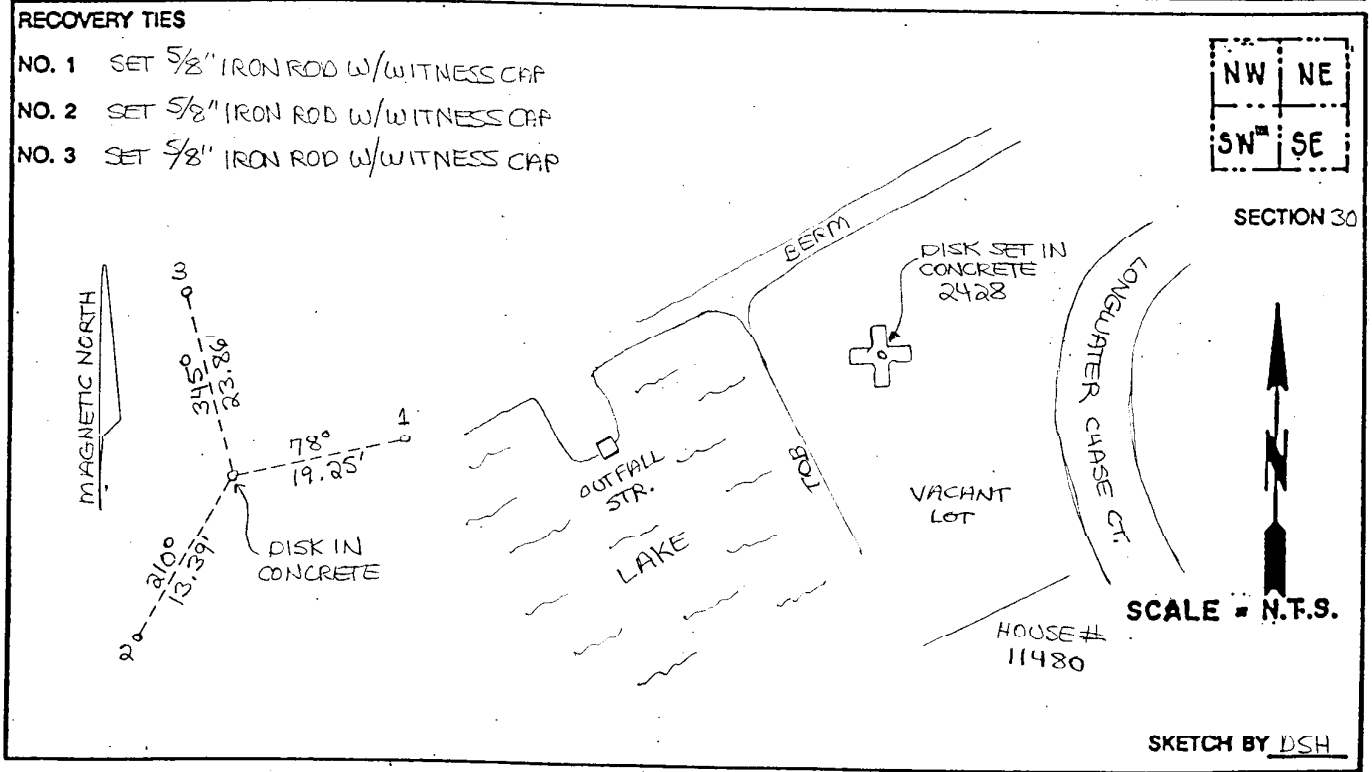 RECOVERY TIES
NO. 1 SET 5/8" IRON ROD W/WITNESS CAP
NO. 2 SET 5/8" IRON ROD W/WITNESS CAP
NO. 3 SET 5/8" IRON ROD W/WITNESS CAP
NW NE
SW SE
SECTION 30
MAGNETIC NORTH
3
345°
23.86'
1
78°
19.25'
210°
13.39'
2
DISK IN
CONCRETE
BERM
DISK SET IN
CONCRETE
2428
LONGWATER CHASE CT.
OUTFALL
STR.
LAKE
TOB
VACANT
LOT
N
SCALE = N.T.S.
HOUSE #
11480
SKETCH BY DSH